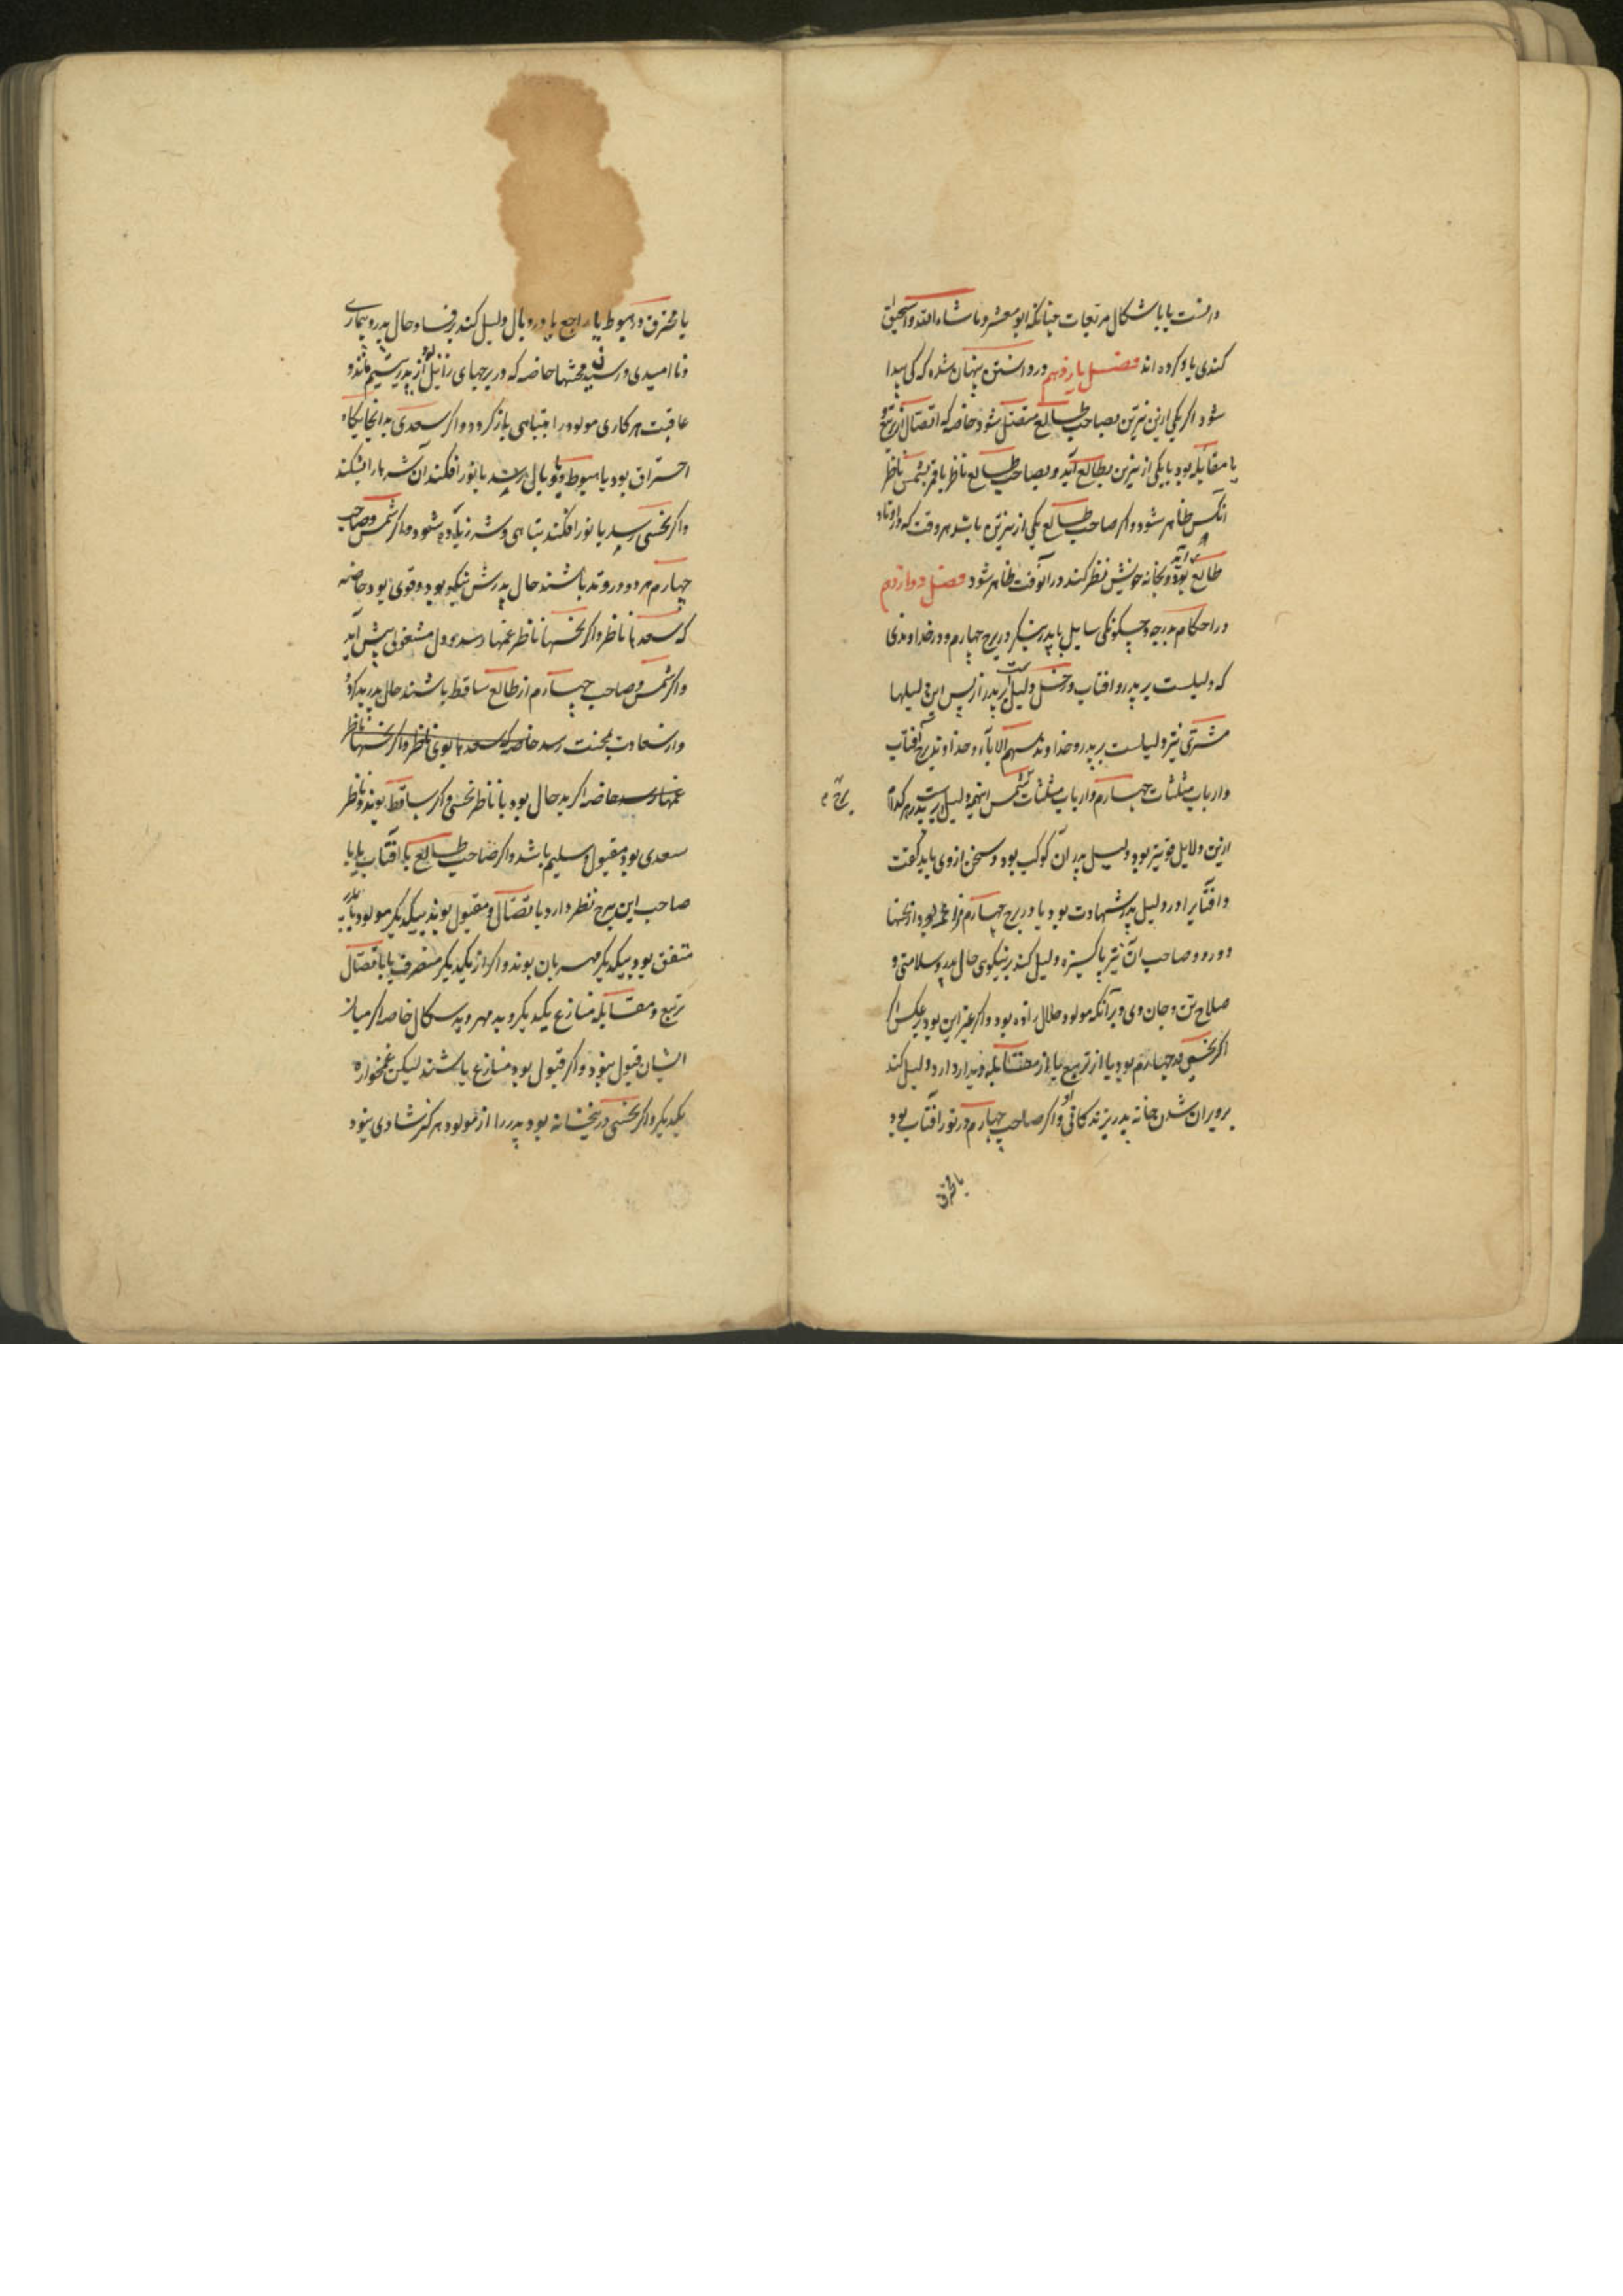 دانست یا باشکال مربعات چنانکه ابو معشر و ماشاء الله و اسحق
کندی یاد کرده اند فصل یازدهم در دانستن پنهان شده که کی پیدا
شود اگر یکی ازین نیرین بصاحب طالع متصل شود خاصه که اتصال از تربیع
یا مقابله بود یا یکی از نیرین بطالع آید و بصاحب طالع ناظر یا قمر بشمس ناظر
آنکس ظاهر شود و اگر صاحب طالع یکی از نیرین باشد هر وقت که در اوتاد
طالع آید و بخانه خویش نظر کند در آنوقت ظاهر شود فصل دوازدهم
در احکام درجه و چگونگی سایل با پدر بنگر در برج چهارم و در خداوند وی
که دلیلست بر پدر و افتاب و زحل دلیل است بر پدر از پس این دلیلها
مشتری نیز دلیلست بر پدر و خداوند سهم الاباء و خداوند برج آفتاب
و ارباب مثلثات چهارم و ارباب مثلثات شمس اینهمه دلیل است بر پدر هر کدام
برج
ازین دلایل قویتر بود دلیل پدر آن کوکب بود و سخن از وی باید گفت
و افتاب را در دلیل پدر شهادت بود یا در برج چهارم بود از نحسها
دور و صاحب آن نیز پاکیزه دلیل کند بر نیکوی حال پدر و سلامتی و
صلاح تن و جان وی و برآنکه مولود حلال زاده بود و اگر غیر این بود بر عکس
اگر نحسی در چهارم بود یا از تربیع یا از مقابله دیدار دارد دلیل کند
بر ویران شدن خانه پدر بزندگانی او و اگر صاحب چهارم در نور آفتاب بود
یا محترق
یا محترق در هبوط یا راجع یا در وبال دلیل کند بر فساد حال پدر و بیماری
و ناامیدی و رسیدن محنتها خاصه که در برجهای زایل بود از پدر یتیم ماند و
عاقبت هر کاری مولود را بتباهی بازگردد و اگر سعدی بدانجایگاه
احتراق بود یا هبوط و یا وبال رسد یا نور افکند آن شرها را بشکند
و اگر نحسی رسد یا نور افکند تباهی و شر زیاده شود و اگر شمس و صاحب
چهارم هر دو در وتد باشند حال پدرش نیکو بود و قوی بود خاصه
که سعدها ناظر و اگر نحسها ناظر غمها رسد و دل مشغولی پیش آید
و اگر شمس و صاحب چهارم از طالع ساقط باشند حال پدر بد گردد
و از سعادت بمحنت رسد خاصه که سعدها بوی ناظر و اگر نحسها ناظر
غمها رسد خاصه اگر بد حال بود یا ناظر نحسی و اگر ساقط بوند و ناظر
سعدی بود مقبول و سلیم باشد و اگر صاحب طالع با آفتاب یا با
صاحب این برج نظر دارد با تصال و مقبول بوند بیکدیگر مولود با پدر
متفق بود بیکدیگر مهربان بوند و اگر از یکدیگر منصرف یا باتصال
تربیع و مقابله منازع یکدیگر و بد مهر و بد سگال خاصه اگر میان
ایشان قبول نبود و اگر قبول بود منازع باشند لیکن غمخواره
یکدیگر و اگر نحسی در پنجخانه بود پدر را از مولود هرگز شادی نبود